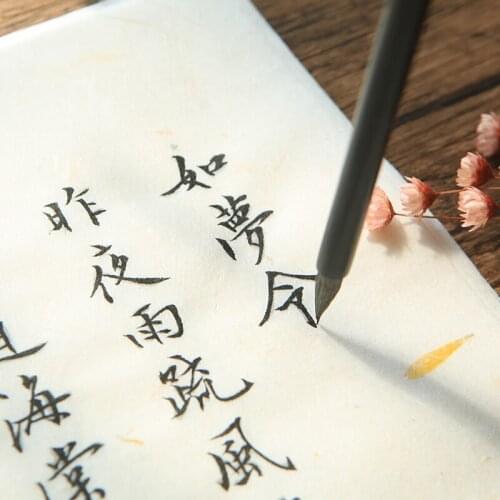 如夢令
昨夜雨疏風
海棠